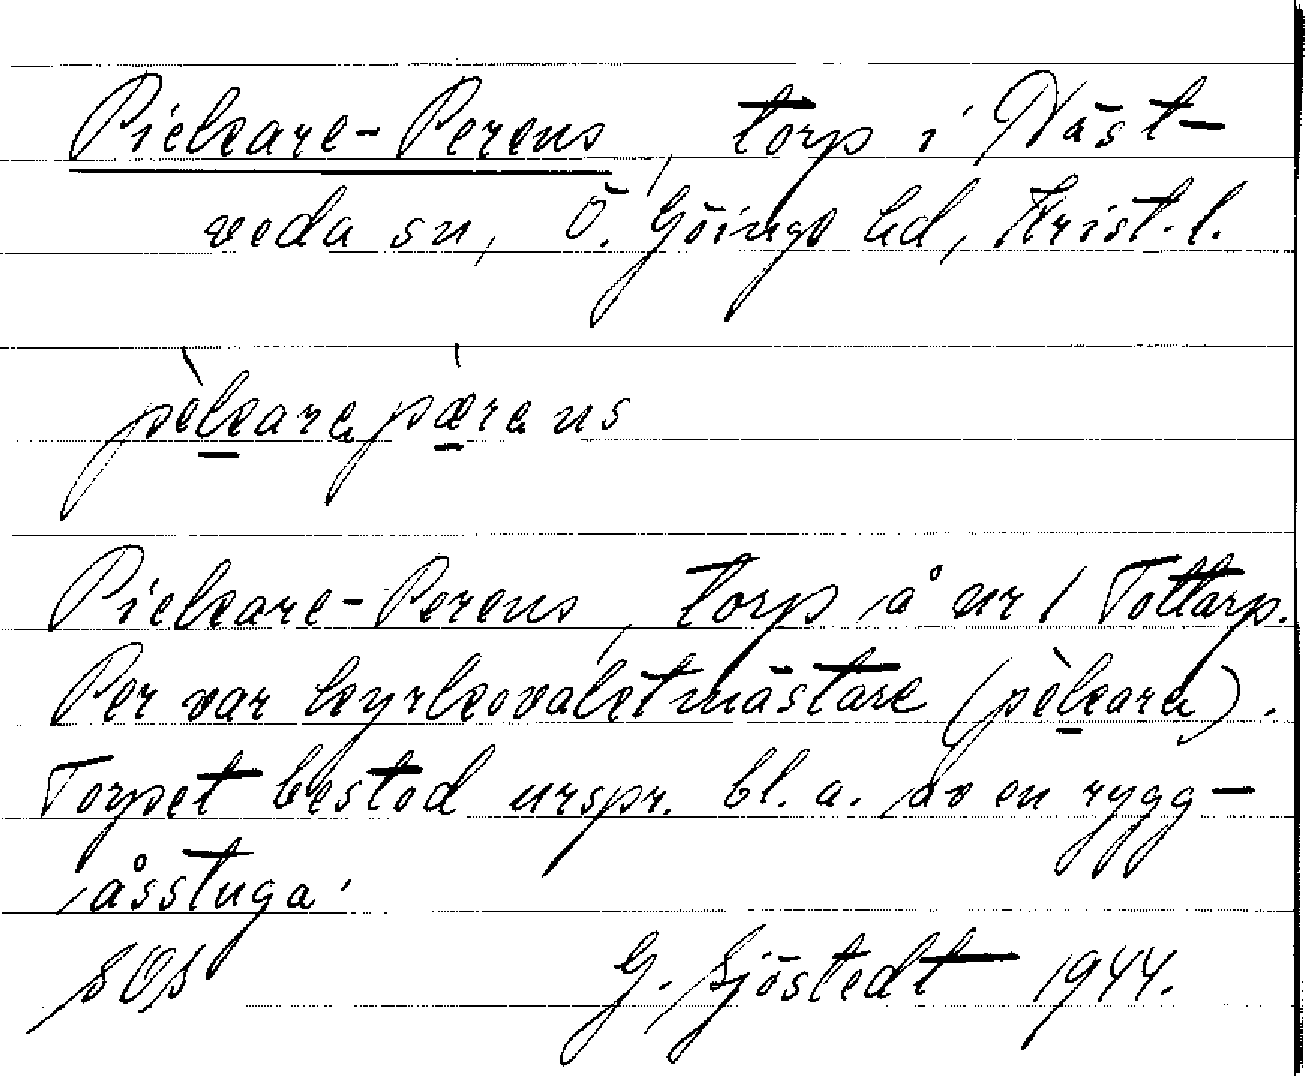 Pickare-Perens, torp i Näst-
veda sn, Ö. Göinge hd, Krist. l.
pèkarə pærəns
Pickare-Perens, torp å nr 1 Tottarp.
Per var kyrkovaktmästare (pèkarə).
Torpet bestod urspr. bl. a. av en rygg-
åsstuga.
SOS G. Sjöstedt 1944.